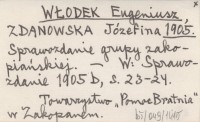 WŁODEK Eugeniusz,
ZDANOWSKA Józefina, 1905.
Sprawozdanie grupy zako-
piańskiej. — W: Sprawo-
zdanie 1905 b, s. 23-24.
Towarzystwo "Pomoc Bratnia"
w Zakopanem.